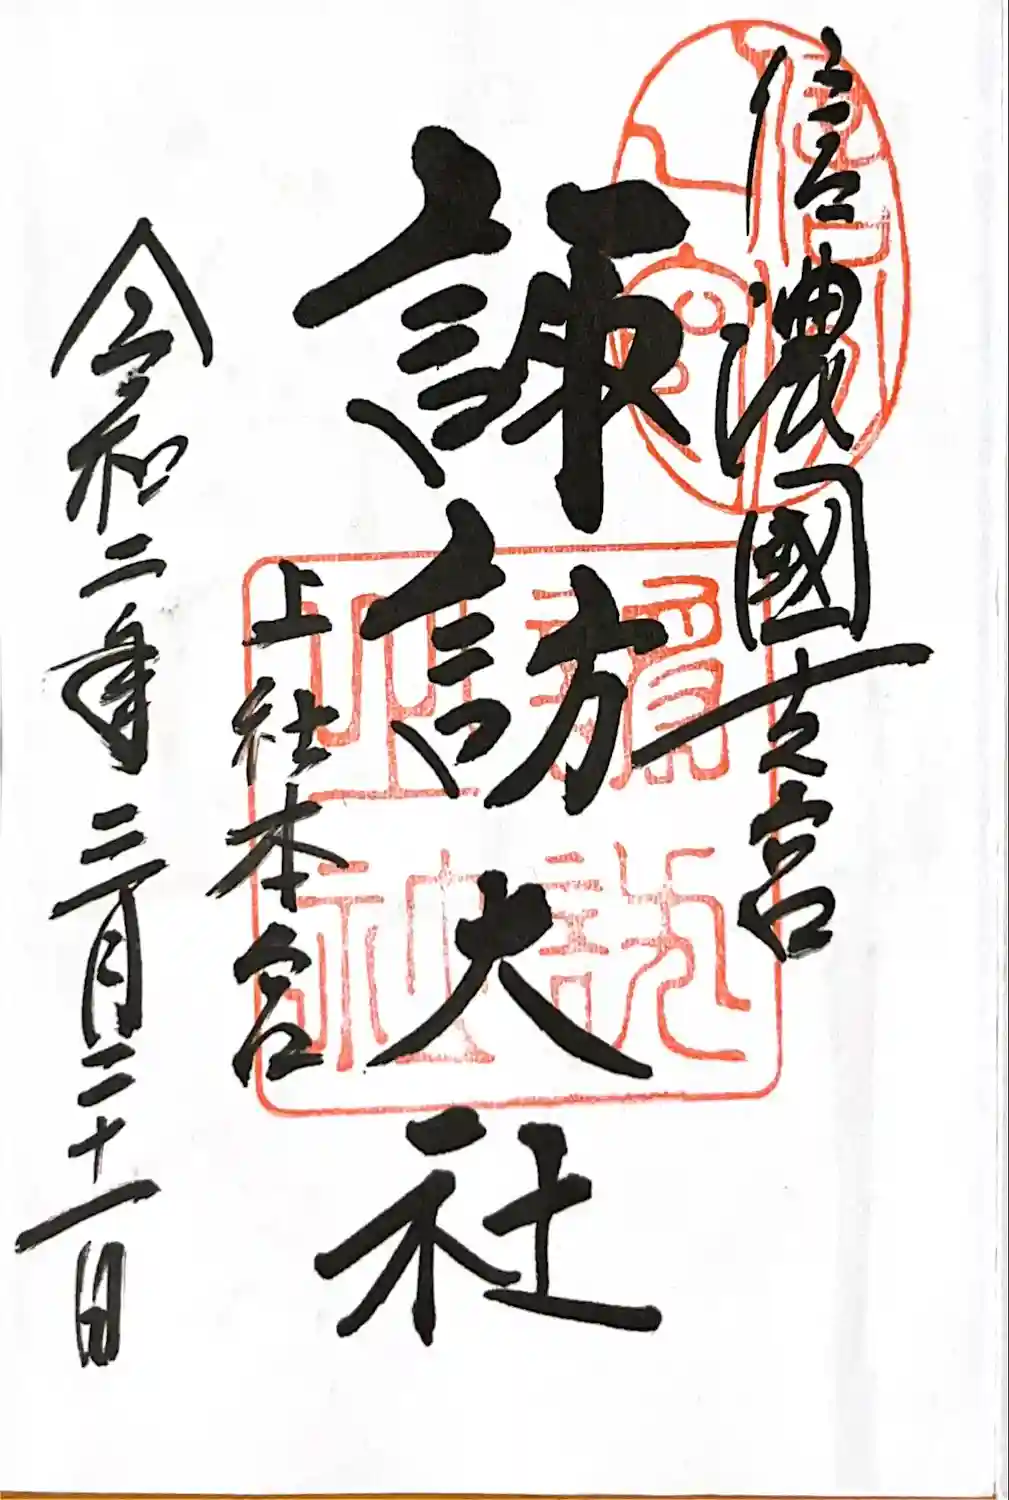 信濃國一之宮
諏訪大社
上社本宮
令和二年三月二十一日